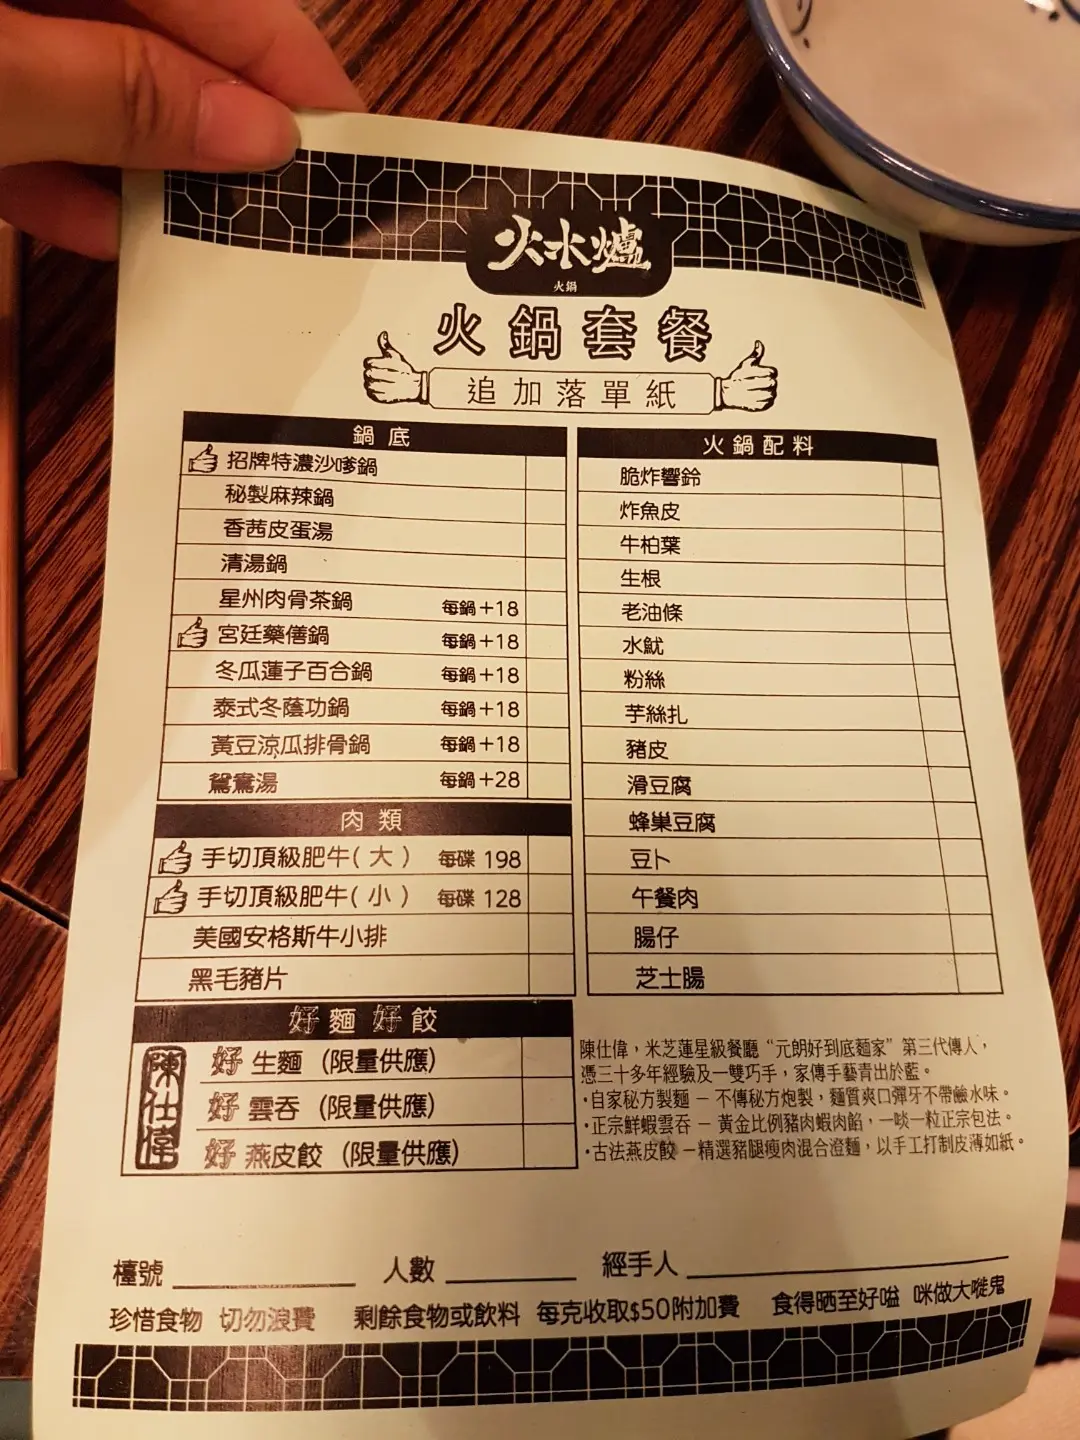 火水爐
火鍋
火鍋套餐
追加落單紙
鍋底
招牌特濃沙嗲鍋
秘製麻辣鍋
香茜皮蛋湯
清湯鍋
星州肉骨茶鍋 每鍋+18
宮廷藥僐鍋 每鍋+18
冬瓜蓮子百合鍋 每鍋+18
泰式冬蔭功鍋 每鍋+18
黃豆涼瓜排骨鍋 每鍋+18
鴛鴦湯 每鍋+28
肉類
手切頂級肥牛(大) 每碟 198
手切頂級肥牛(小) 每碟 128
美國安格斯牛小排
黑毛豬片
好麵好餃
陳仕偉
好 生麵 (限量供應)
好 雲吞 (限量供應)
好 燕皮餃 (限量供應)
火鍋配料
脆炸響鈴
炸魚皮
牛柏葉
生根
老油條
水魷
粉絲
芋絲扎
豬皮
滑豆腐
蜂巢豆腐
豆卜
午餐肉
腸仔
芝士腸
陳仕偉，米芝蓮星級餐廳“元朗好到底麵家”第三代傳人，
憑三十多年經驗及一雙巧手，家傳手藝青出於藍。
·自家秘方製麵 – 不傳秘方炮製，麵質爽口彈牙不帶鹼水味。
·正宗鮮蝦雲吞 – 黃金比例豬肉蝦肉餡，一啖一粒正宗包法。
·古法燕皮餃 – 精選豬腿瘦肉混合澄麵，以手工打制皮薄如紙。
檯號 人數 經手人
珍惜食物 切勿浪費 剩餘食物或飲料 每克收取$50附加費 食得晒至好嗌 咪做大嘥鬼